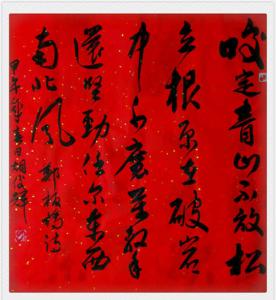 咬定青山不放松
立根原在破岩
中千磨萬擊
還坚劲任尔东西
南北风 郑板桥诗
甲午年